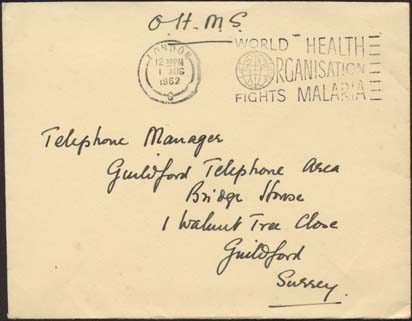 O.H.M.S
LONDON
12-30PM
1 AUG
1962
C
WORLD HEALTH
ORGANISATION
FIGHTS MALARIA
Telephone Manager
Guildford Telephone Area
Bridge House
1 Walnut Tree Close
Guildford
Surrey.